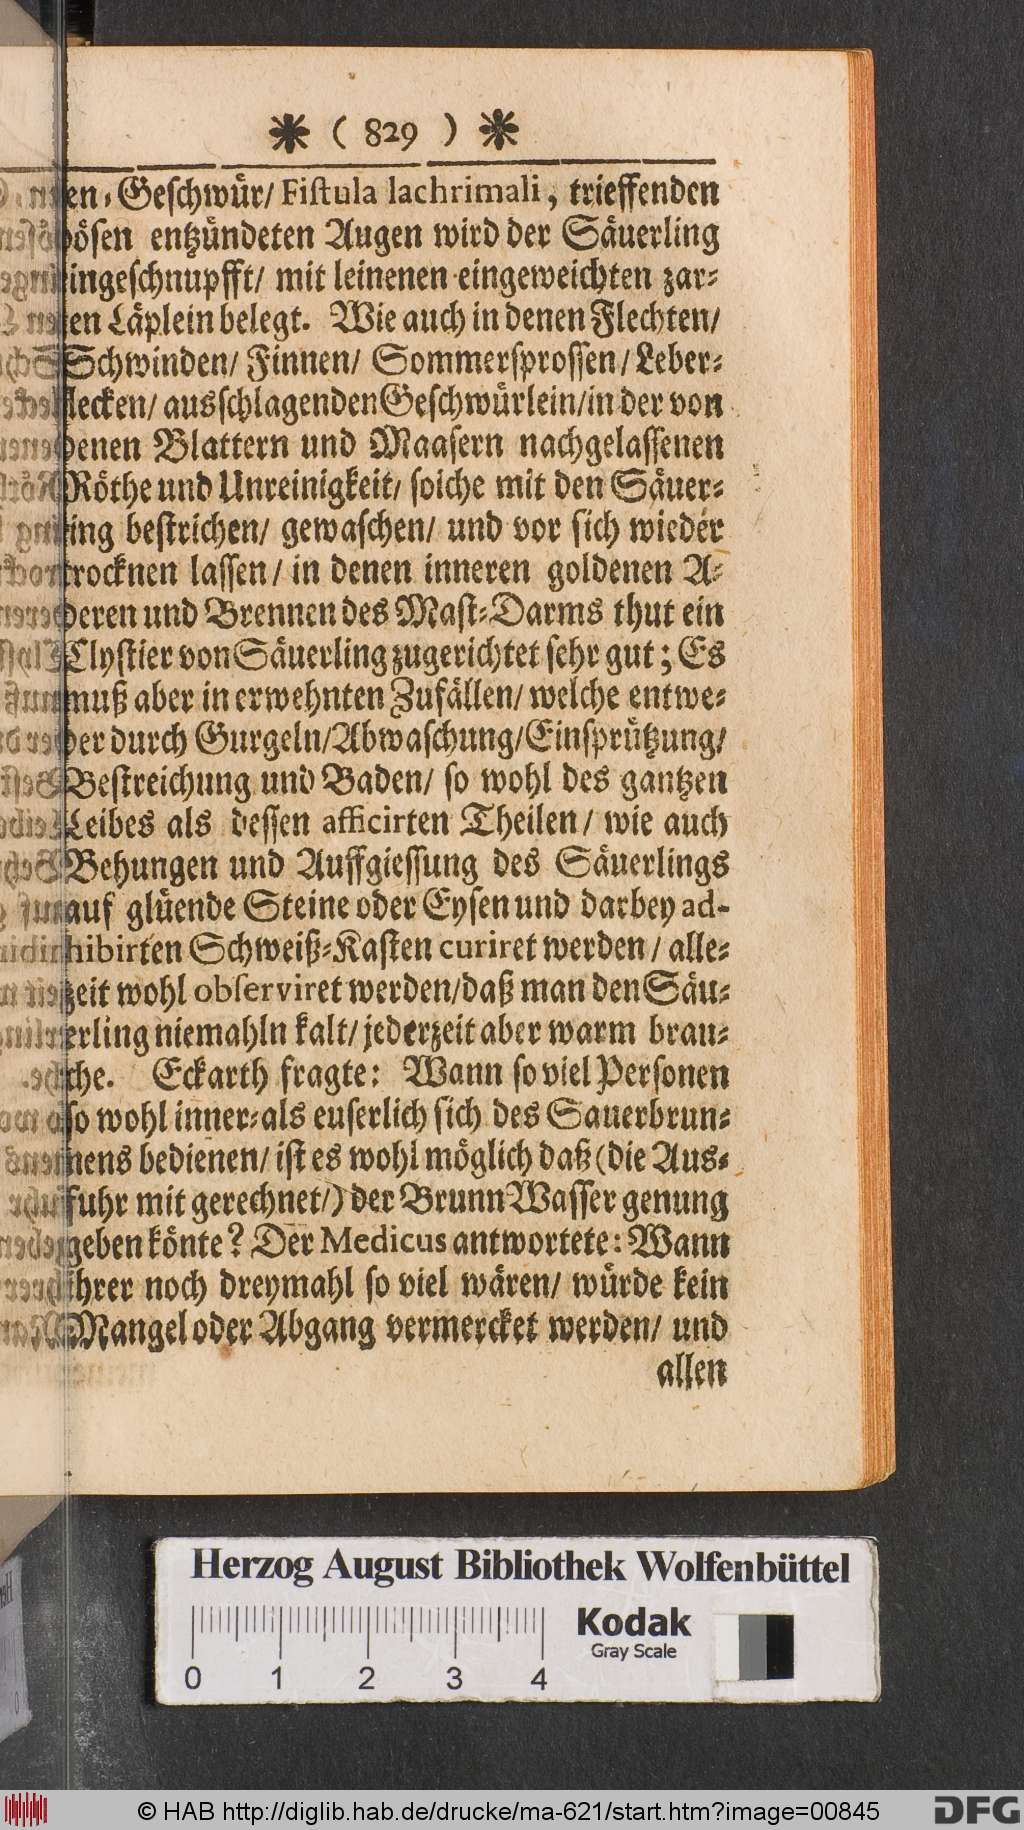 * ( 829 ) *
en-Geschwür/ Fistula lachrimali, trieffenden
bösen entzündeten Augen wird der Säuerling
eingeschnupfft/ mit leinenen eingeweichten zar-
ten Läplein belegt. Wie auch in denen Flechten/
Schwinden/ Finnen/ Sommersprossen/ Leber-
flecken/ ausschlagenden Geschwürlein/ in der von
denen Blattern und Maasern nachgelassenen
Röthe und Unreinigkeit/ solche mit den Säuer-
ling bestrichen/ gewaschen/ und vor sich wieder
trocknen lassen/ in denen inneren goldenen A-
deren und Brennen des Mast-Darms thut ein
Clystier von Säuerling zugerichtet sehr gut; Es
muß aber in erwehnten Zufällen/ welche entwe-
der durch Gurgeln/ Abwaschung/ Einsprützung/
Bestreichung und Baden/ so wohl des gantzen
Leibes als dessen afficirten Theilen/ wie auch
Behungen und Auffgiessung des Säuerlings
auf glüende Steine oder Eysen und darbey ad-
hibirten Schweiß-Kasten curiret werden/ alle-
zeit wohl observiret werden/ daß man den Säu-
erling niemahln kalt/ jederzeit aber warm brau-
che. Eckarth fragte: Wann so viel Personen
so wohl inner-als euserlich sich des Sauerbrun-
nens bedienen/ ist es wohl möglich daß (die Aus-
fuhr mit gerechnet/) der Brunn Wasser genung
geben könte? Der Medicus antwortete: Wann
ihrer noch dreymahl so viel wären/ würde kein
Mangel oder Abgang vermercket werden/ und
allen
Herzog August Bibliothek Wolfenbüttel
0 1 2 3 4
Kodak
Gray Scale
© HAB http://diglib.hab.de/drucke/ma-621/start.htm?image=00845
DFG